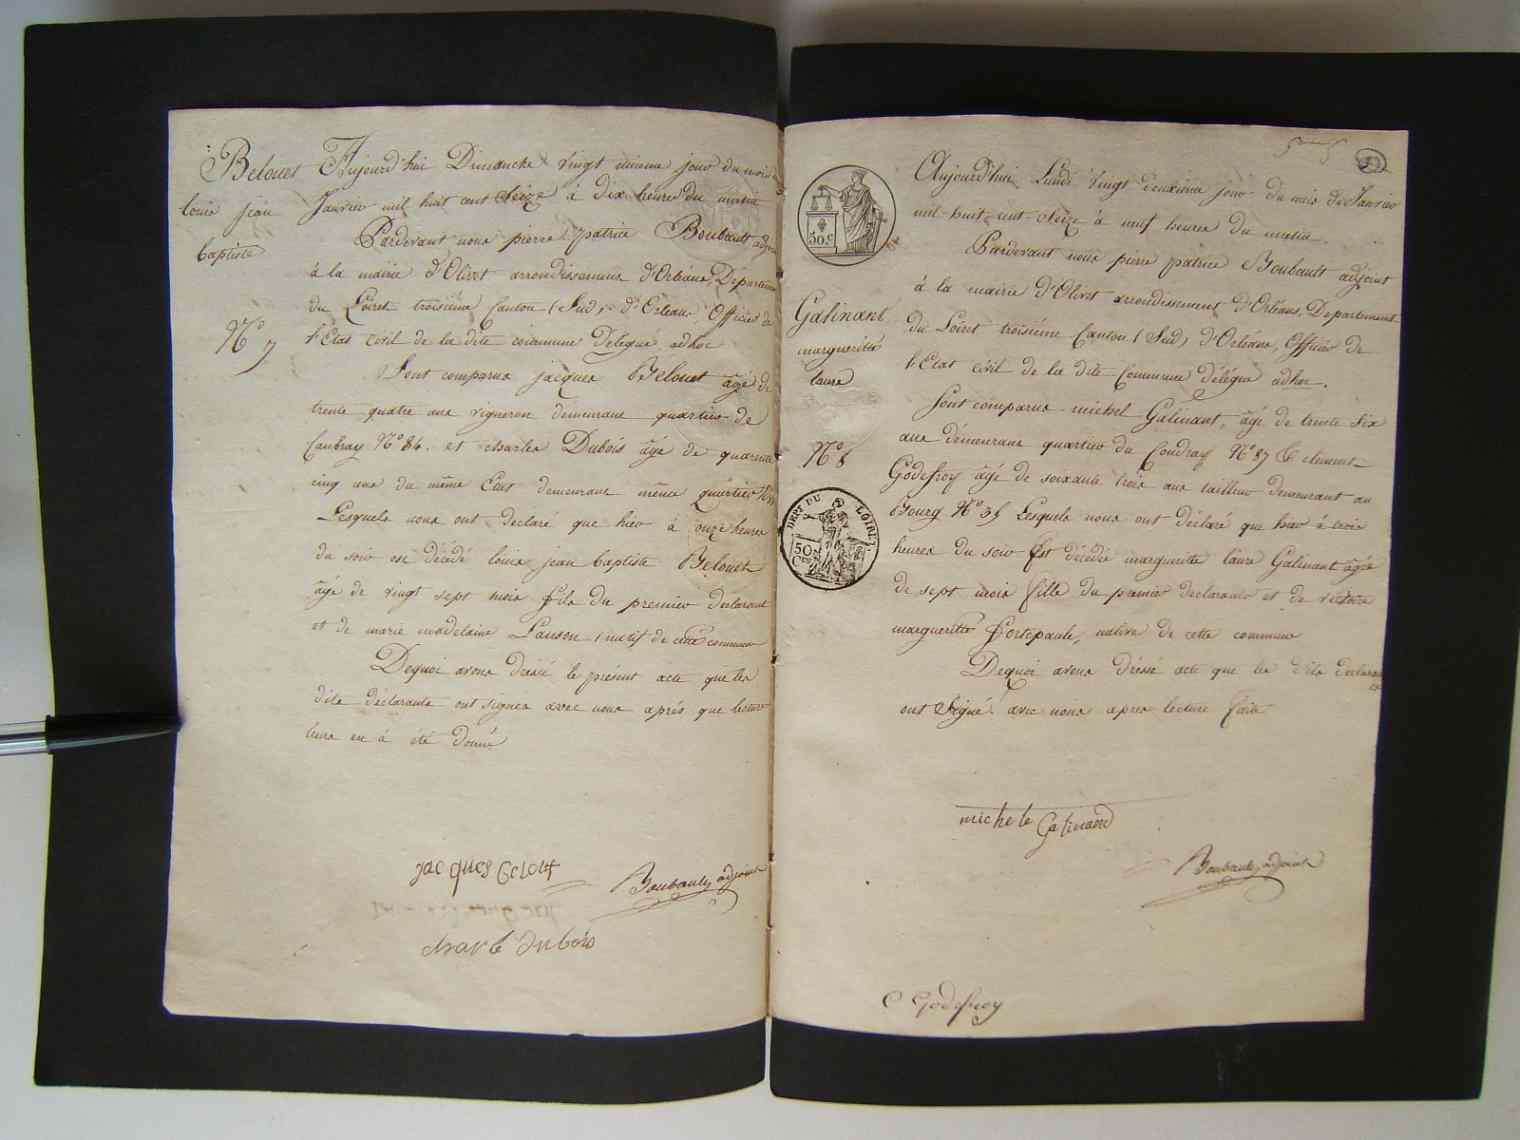 Belouet
louis jean
baptiste
N° 7
Aujourd'hui Dimanche vingt unieme jour du mois de
Janvier mil huit cent Seize à dix heures du matin
Pardevant nous pierre patrice Boubault adjoint
à la mairie d'Olivet arrondissement d'Orléans, Département
du Loiret troisième Canton (Sud) d'Orléans Officier de
l'Etat civil de la dite commune Délégué adhoc
Sont comparus jacques Belouet âgé de
trente quatre ans vigneron demeurant quartier de
Caubray N° 84. et charles Dubois âgé de quarante
cinq ans du même Etat demeurant même quartier
Lesquels nous ont déclaré que hier à onze heures
du soir est décédé louis jean baptiste Belouet
âgé de vingt sept mois fils du premier declarant
et de marie madelaine Lanson, natif de cette commune
Dequoi avons dréssé le présent acte que les
dits déclarants ont signés avec nous après que lecture
leure en à été donné
jacques belout
Boubault adjoint
charle dubois
50.C
Galinant
margueritte
laure
N° 8
DEPT DU LOIRET.
50
Cmes
Aujourd'hui Lundi Vingt deuxième jour du mois de Janvier
mil huit cent Seize à neuf heures du matin
Pardevant nous pierre patrice Boubault adjoint
à la mairie d'Olivet arrondissement d'Orléans, Departement
du Loiret troisième Canton (Sud) d'Orléans, Officier de
l'Etat civil de la dite Commune délégué adhoc.
Sont comparus michel Galinant, âgé de trente six
ans demeurant quartier du Coudray N° 87 & clement
Godefroy âgé de soixante trois ans tailleur demeurant au
Bourg N° 35 Lesquels nous ont déclaré que hier à trois
heures du soir Est décédée margueritte laure Galinant âgée
de sept mois fille du premier déclarants et de victoire
margueritte Fortepaule, native de cette commune
Dequoi avons dréssé acte que les dits declarants
ont Signé avec nous apres lecture faite
michele Galinand
Boubault adjoint
C Godefroy